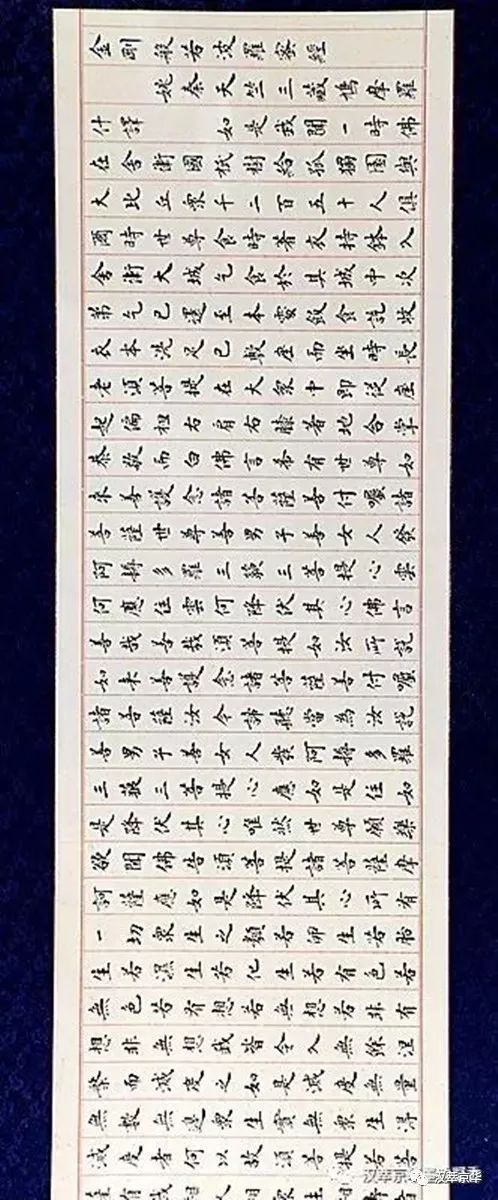 金剛般若波羅蜜經
姚秦天竺三藏鳩摩羅
什譯 如是我聞一時佛
在舍衛國祇樹給孤獨園與
大比丘眾千二百五十人俱
爾時世尊食時著衣持鉢入
舍衛大城乞食於其城中次
第乞已還至本處飯食訖收
衣本洗足已敷座而坐時長
老須菩提在大眾中即從座
起偏袒右肩右膝著地合掌
恭敬而白佛言希有世尊如
來善護念諸菩薩善付囑諸
菩薩世尊善男子善女人發
阿耨多羅三藐三菩提心雲
何應住雲何降伏其心佛言
善哉善哉須菩提如汝所說
如来善護念諸菩薩善付囑
諸菩薩汝今諦聽當為汝說
善男子善女人發阿耨多羅
三藐三菩提心應如是住如
是降伏其心唯然世尊願樂
欲聞佛告須菩提諸菩薩摩
訶薩應如是降伏其心所有
一切眾生之類若卵生若胎
生若濕生若化生若有色若
無色若有想若無想若非有
想非無想我皆令入無餘涅
槃而滅度之如是滅度無量
無數無邊眾生實無眾生得
滅度者何以故須菩提若菩
汉萃京华